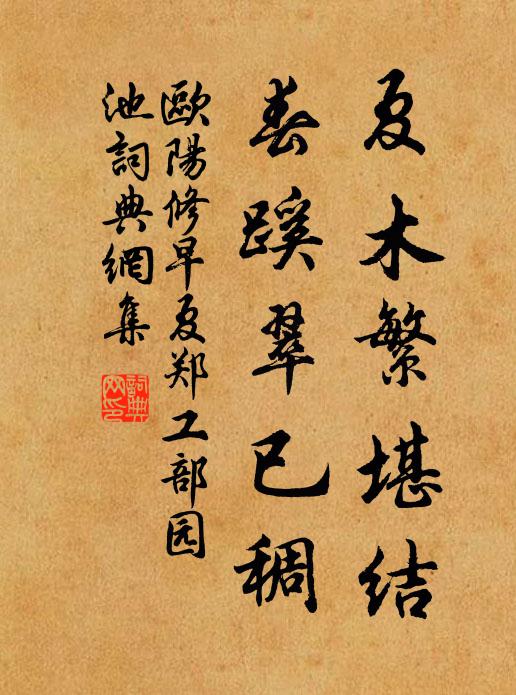 夏木繁堪结
春蹊翠已稠
歐陽修早夏郑工部园
池詞典網集
詞典网印